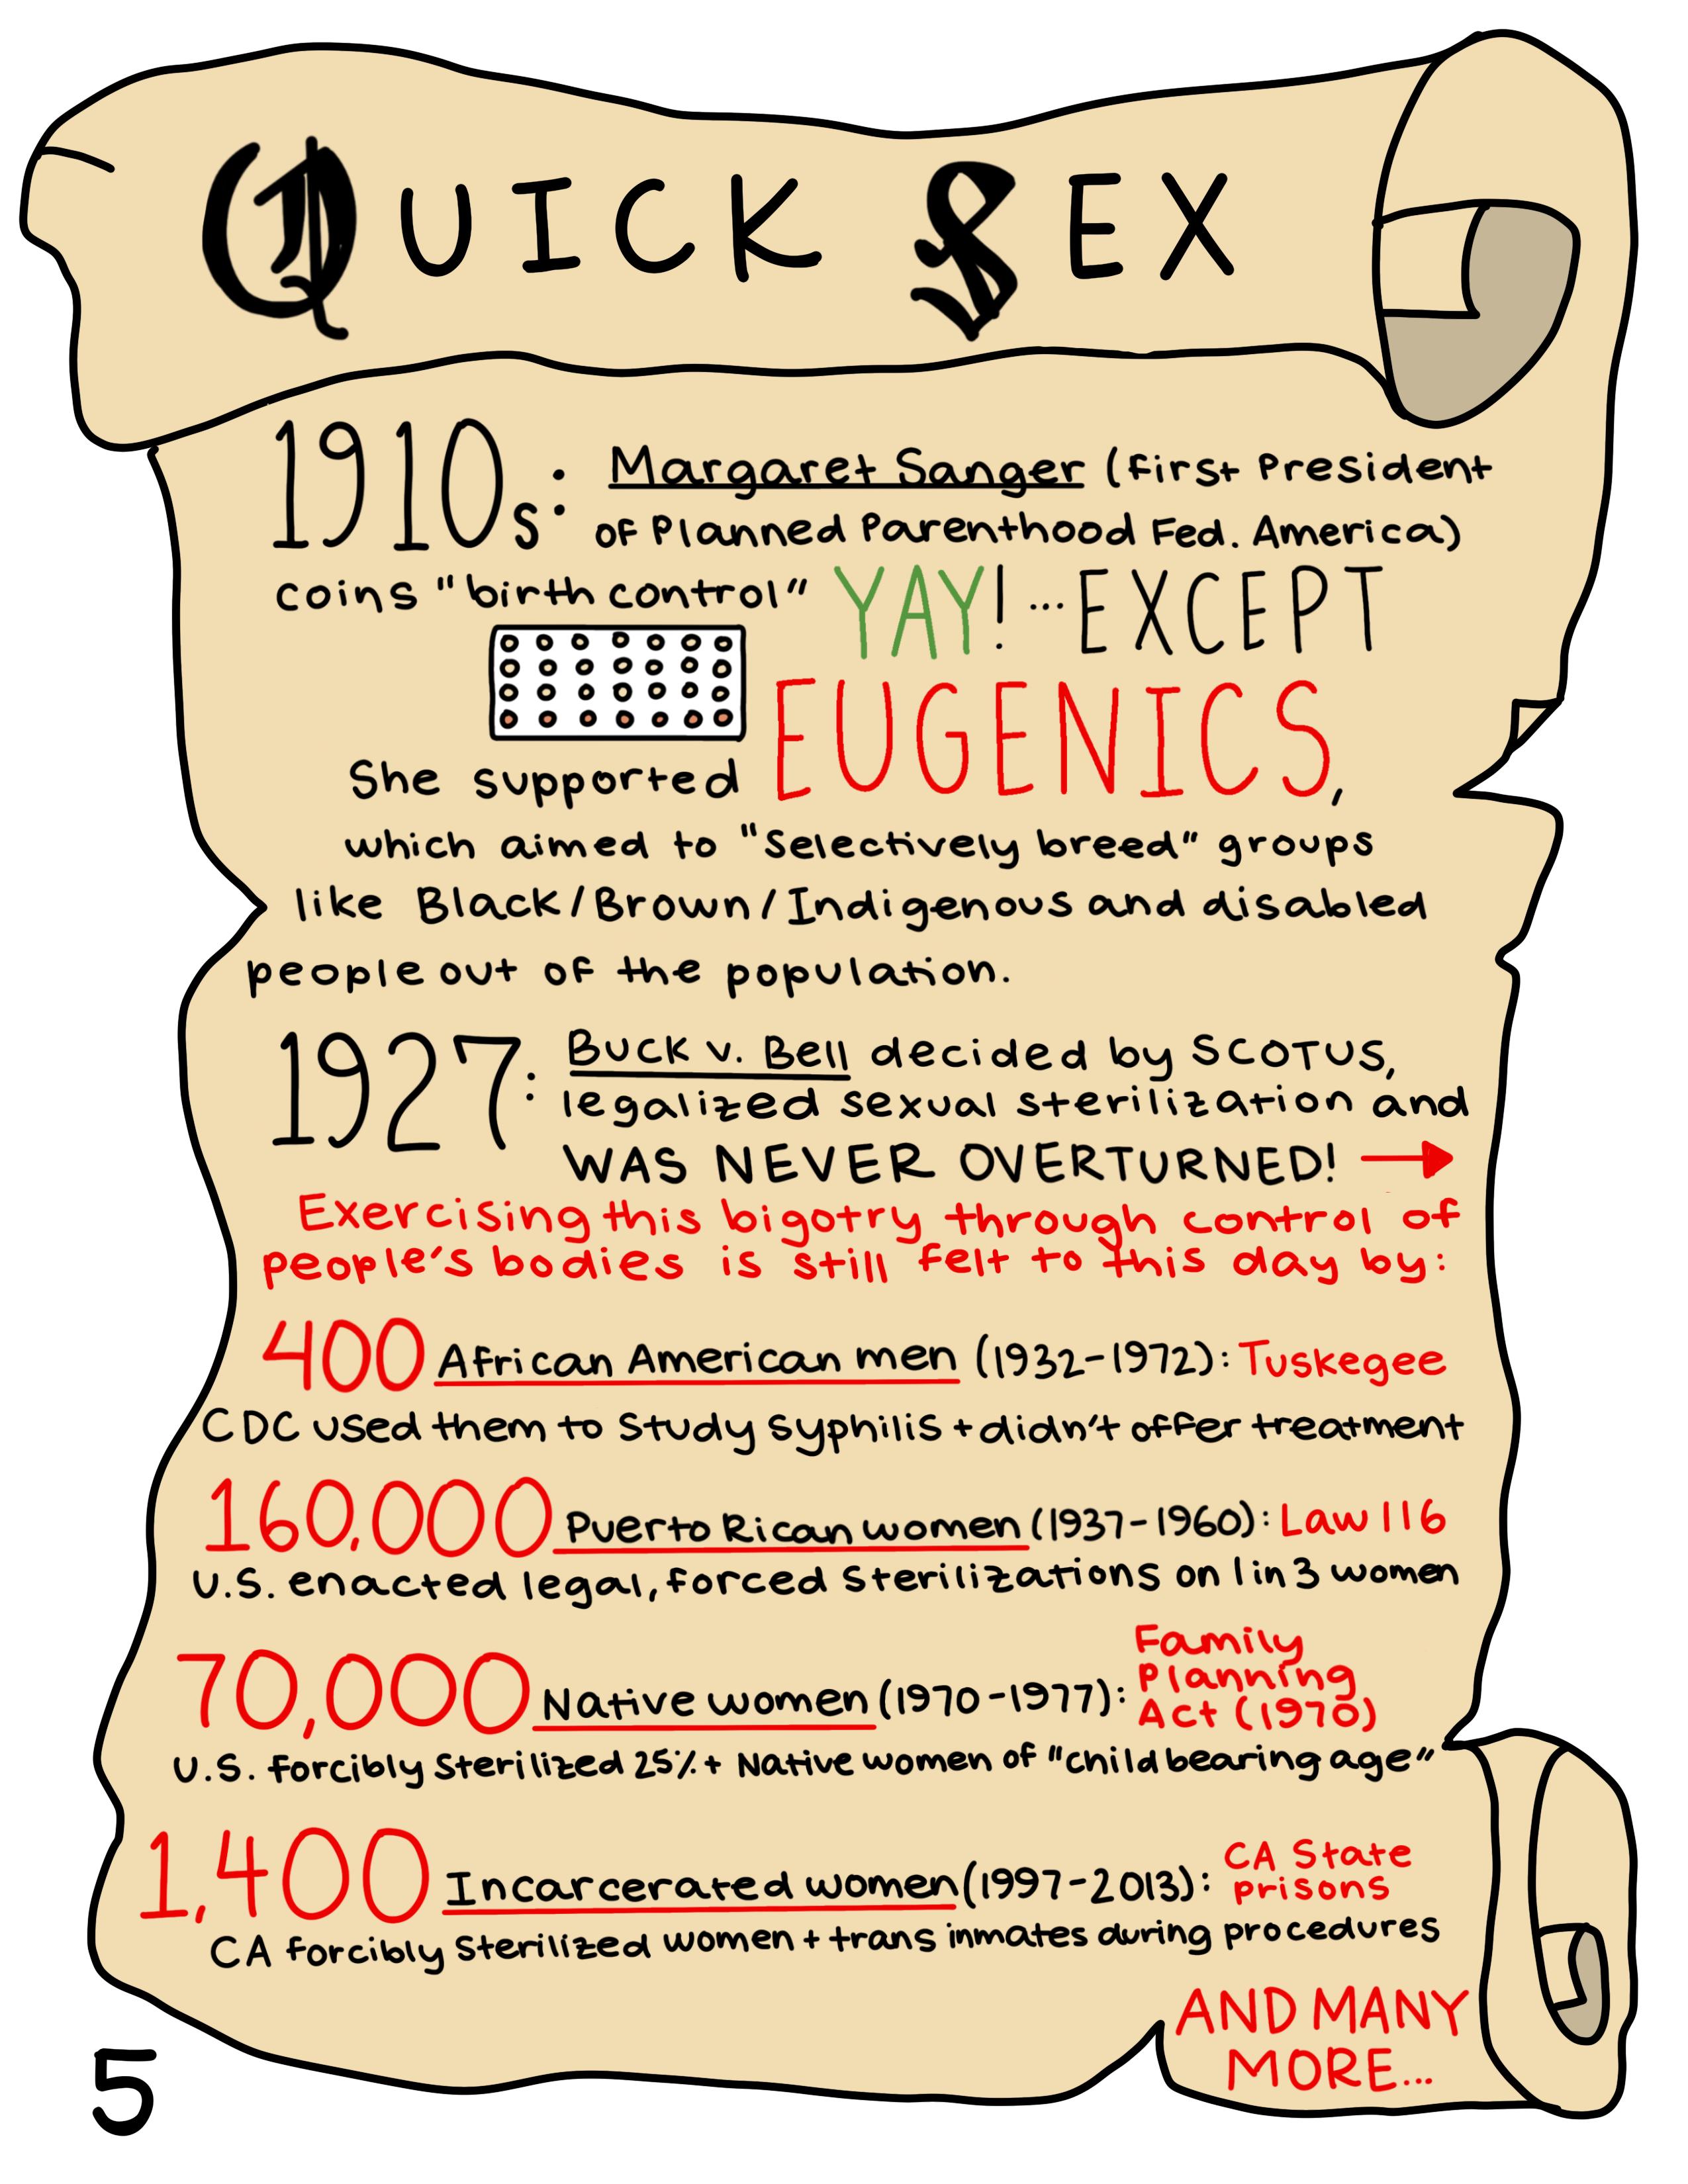 QUICK SEX
1910s: Margaret Sanger (first President
of Planned Parenthood Fed. America)
coins "birth control" YAY! ...EXCEPT
She supported EUGENICS,
which aimed to "selectively breed" groups
like Black/Brown/Indigenous and disabled
people out of the population.
1927: Buck v. Bell decided by SCOTUS,
legalized sexual sterilization and
WAS NEVER OVERTURNED! →
Exercising this bigotry through control of
people's bodies is still felt to this day by:
400 African American men (1932-1972): Tuskegee
CDC used them to study syphilis + didn't offer treatment
160,000 Puerto Rican women (1937-1960): Law 116
U.S. enacted legal, forced sterilizations on 1 in 3 women
70,000 Native women (1970-1977): Family
Planning
Act (1970)
U.S. forcibly sterilized 25%+ Native women of "child bearing age"
1,400 Incarcerated women (1997-2013): CA State
prisons
CA forcibly sterilized women + trans inmates during procedures
AND MANY
MORE...
5